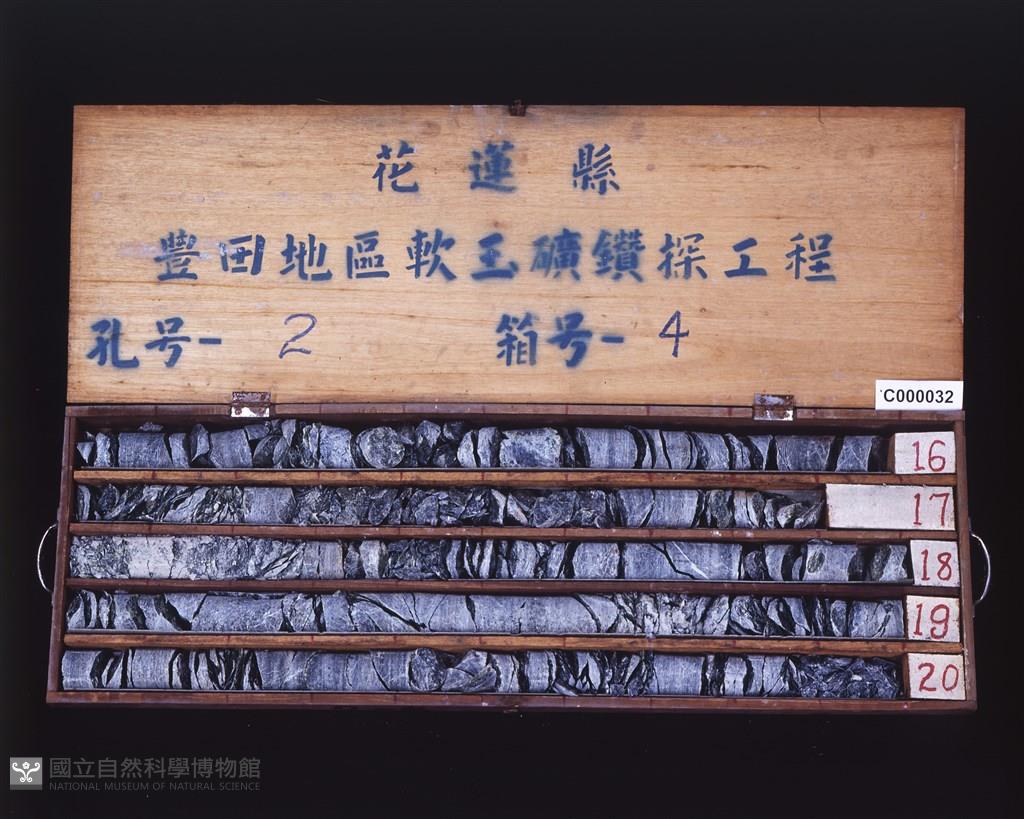 花蓮縣
豐田地區軟玉礦鑽探工程
孔号-2 箱号-4
C000032
16
17
18
19
20
國立自然科學博物館
NATIONAL MUSEUM OF NATURAL SCIENCE